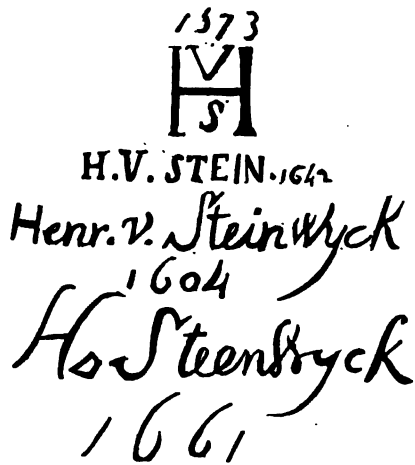 1573
HVS
H.V. STEIN. 1642
Henr. v. Steinwyck
1604
Hs Steenwyck
1661